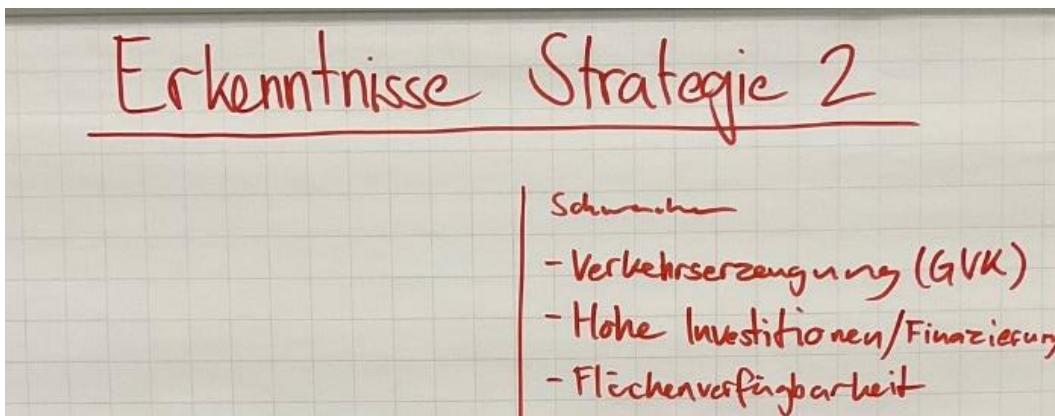 Erkenntnisse Strategie 2
Schwächen
- Verkehrserzeugung (GVK)
- Hohe Investitionen/Finazierung
- Flächenverfügbarkeit